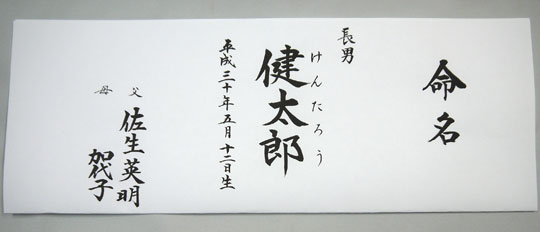 命名
長男
けんたろう
健太郎
平成三十年五月十二日生
父 佐生英明
母 加代子